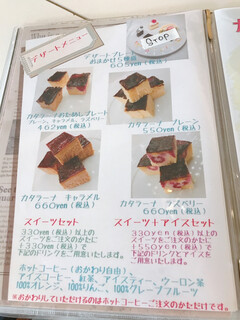 デザートメニュー
デザートプレート
おまかせ5種盛
605yen(税込)
stop
カタラーナお試しプレート
プレーン、キャラメル、ラズベリー
462yen(税込)
カタラーナ プレーン
550yen(税込)
カタラーナ キャラメル
660yen(税込)
カタラーナ ラズベリー
660yen(税込)
スイーツセット
330yen(税込)以上の
スイーツをご注文のかたに
+330yen(税込)で
下記のドリンクをご用意いたします。
スイーツ+アイスセット
330yen(税込)以上の
スイーツをご注文のかたに
+550yen(税込)で
下記のドリンクとアイスを
ご用意いたします。
ホットコーヒー(おかわり自由)、
アイスコーヒー、紅茶、アイスティー、ウーロン茶
100%オレンジ、100%りんご、100%グレープフルーツ、
※おかわりしていただけるのはホットコーヒーご注文のかただけです。